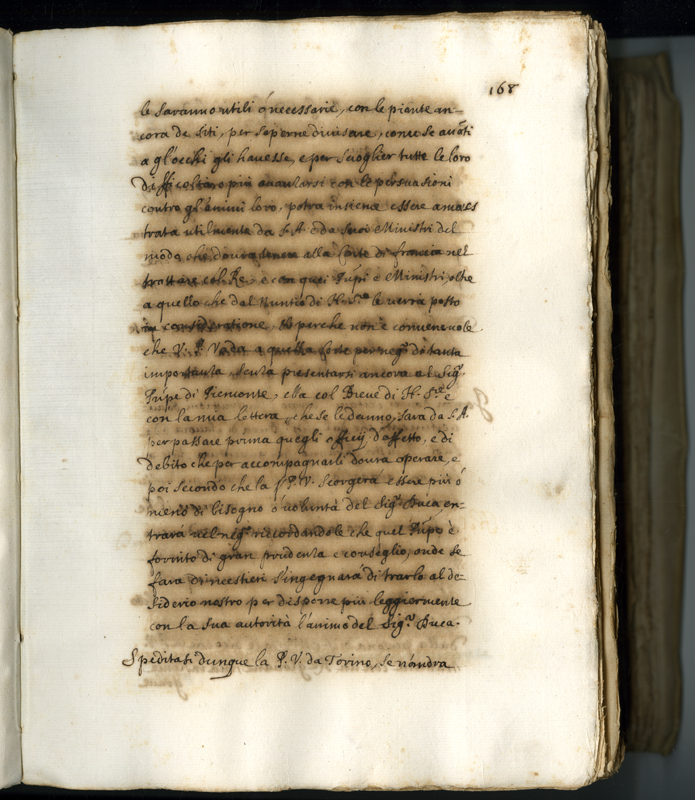 168
le saranno utili ò necessarie, con le piante an-
cora de siti, per saperne divisare, come se avãti
a gl'occhi gli havesse, e per scioglier tutte le loro
difficoltà ò più avvalersi con le persuasioni
contro gl'animi loro, potrà insieme essere amaes
trata utilmente da S. A. e da suoi Ministri del
modo che dovrà tenere alla Corte di francia nel
trattare col Re, e con quei Prĩpi e Ministri, oltre
a quello che dal Nuntio di N. S.re le verrà posto
in consideratione, Et perche non è convenevole
che V. P. vada a quella Corte per neg.o di tanta
importanza, senza presentarsi ancora al Sig.r
Prĩpe di Piemonte, ella col Breve di N. S.re e
con la mia lettera, che se le danno, sarà da S. A.
per passare prima quegli officij d'affetto, e di
debito che per accompagnarli dovrà operare, e
poi secondo che la P. V. scorgerà essere più ò
meno di bisogno ò volontà del Sig.r Duca en-
trarà nel neg.o riccordandole che quel Prĩpe è
fornito di gran prudenza e conseglio, onde se
farà di mestieri s'ingegnarà di trarlo al de-
siderio nostro per disporre più leggiermente
con la sua autorità l'animo del Sig.r Duca.
Speditasi dunque la P. V. da Torino, se n'andrà